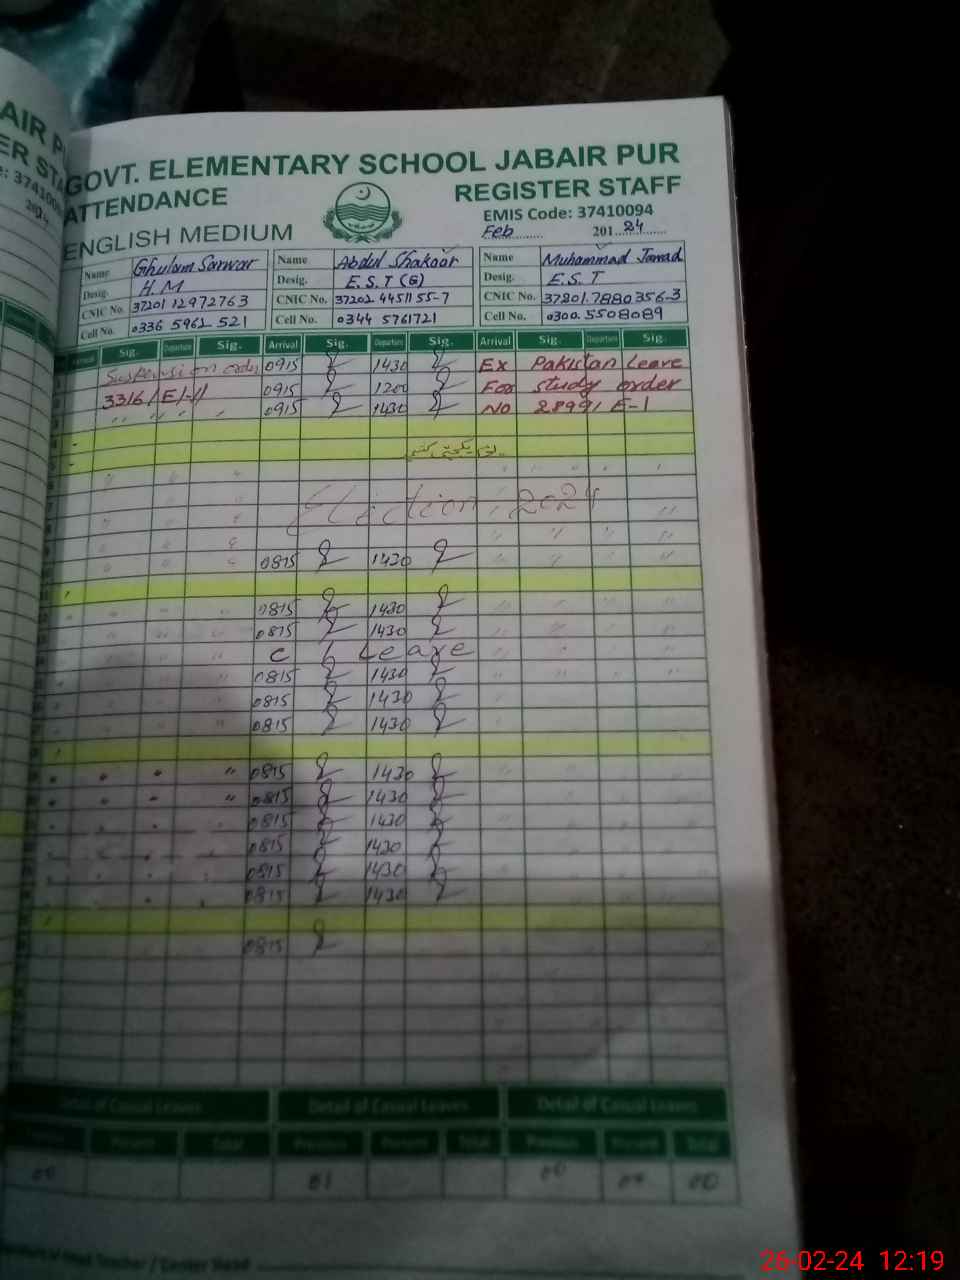 AIR P
ER STA
e: 374100
2024
GOVT. ELEMENTARY SCHOOL JABAIR PUR
ATTENDANCE REGISTER STAFF
EMIS Code: 37410094
ENGLISH MEDIUM Feb 201 24
Name Ghulam Sarwar Name Abdul Shakoor Name Muhammad Jawad
Desig. H.M Desig. E.S.T (G) Desig. E.S.T
CNIC No. 37201 12972763 CNIC No. 37202 4451155-7 CNIC No. 37201.7880356-3
Cell No. 0336 5961 521 Cell No. 0344 5761721 Cell No. 0300.5508089
Arrival Sig. Departure Sig. Arrival Sig. Departure Sig. Arrival Sig. Departure Sig.
Suspension order 0915 1430 Ex Pakistan Leave
3316/E/-I/ 0915 1200 For study order
" " " " 0915 1430 No 2899/E-1
Election 2024
0815 1430
0815 1430
0815 1430
C Leave
0815 1430
0815 1430
0815 1430
0815 1430
0815 1430
0815 1430
0815 1430
0815 1430
0815 1430
0815
Detail of Casual Leaves Detail of Casual Leaves Detail of Casual Leaves
Previous Present Total Previous Present Total Previous Present Total
00 01 00 00 00
Head Teacher / Center Head
26-02-24 12:19